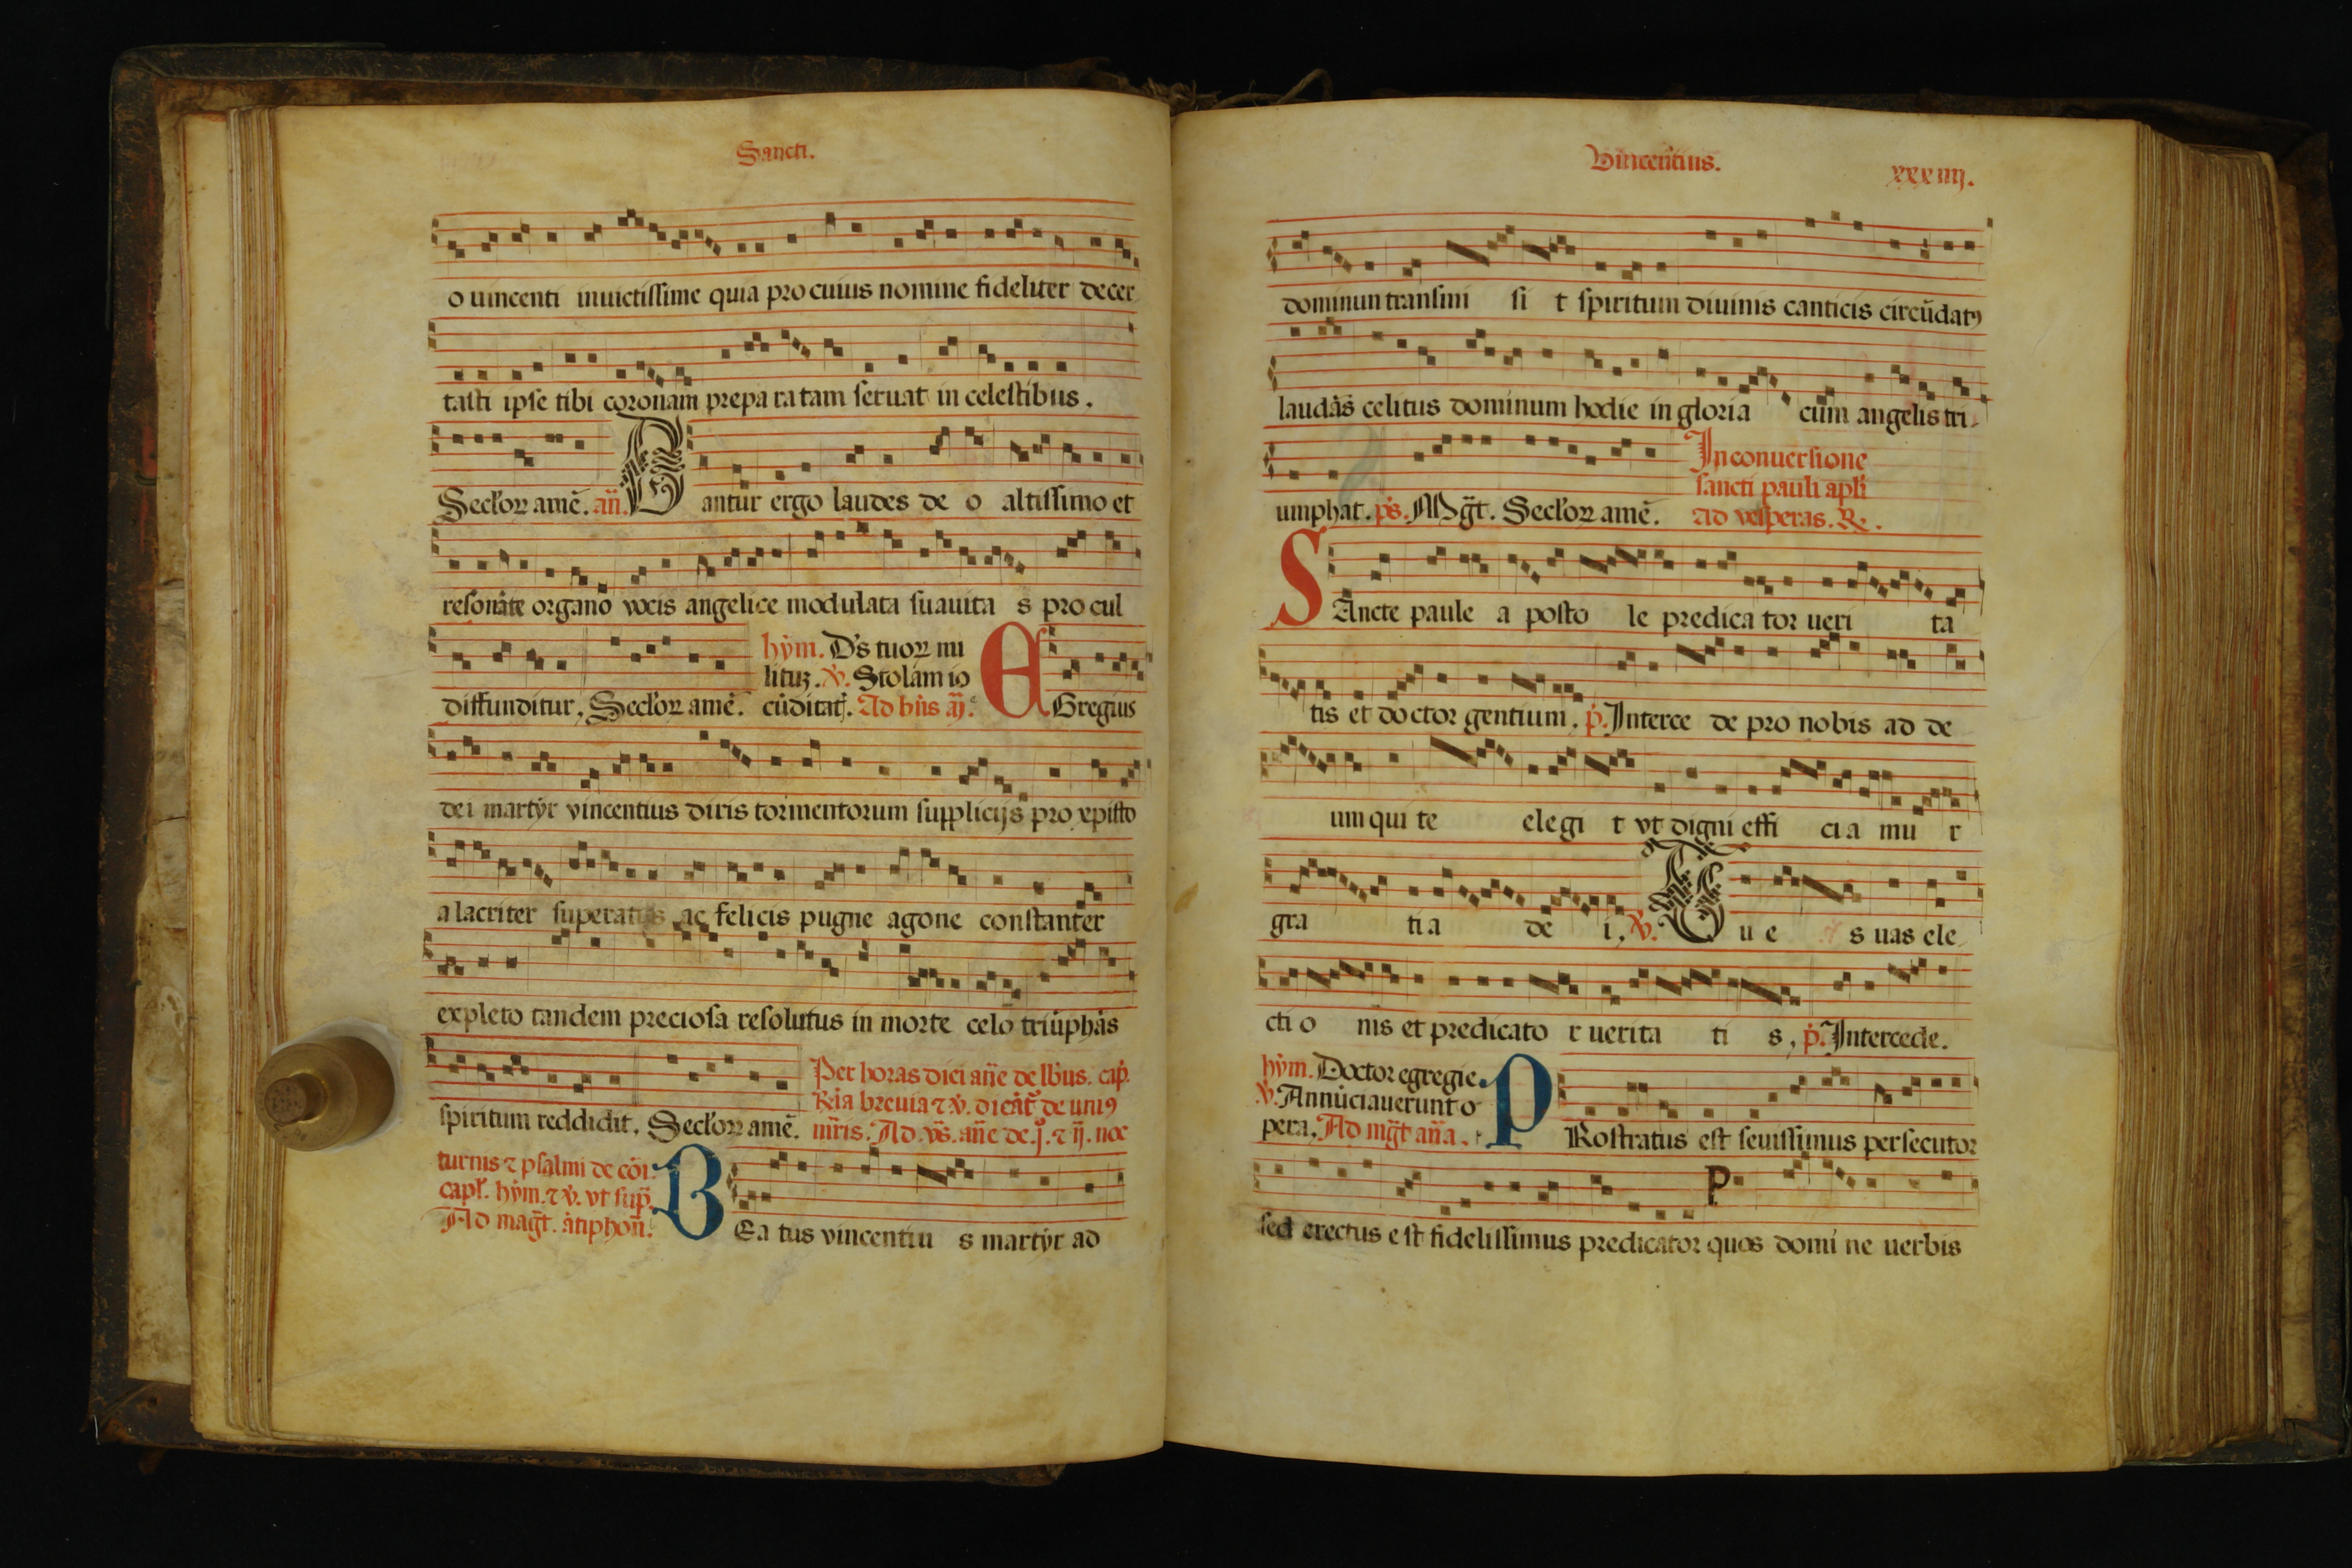 Sancti.
o uincenti inuictissime quia pro cuius nomine fideliter decer
tasti ipse tibi coronam prepa ra tam seruat in celestibus.
Seclorꝝ amē. añ. Dantur ergo laudes de o altissimo et
resonāte organo vocis angelice modulata suauita s procul
hym. Ds tuorꝝ mi
lituꝫ. ℣. Stolam io
diffunditur, Seclorꝝ amē. cūditatꝭ. Ad bñs añ. EGregius
dei martyr vincentius diris tormentorum supplicijs pro xpisto
alacriter superatis ac felicis pugne agone constanter
expleto tandem preciosa resolutus in morte celo triūphās
Per horas diei añe de lbus. cap.
Ria breuia ⁊ ℣. dicāt de uniꝯ
spiritum reddidit. Seclorꝝ amē. mris. Ad vs. añe de .j. ⁊ ij. noc
turnis ⁊ psalmi de cōi.
capl. hym. ⁊ ℣. vt sup.
Ad magt. ātiphon.
BEa tus vincentiu s martyr ad
Vincentius. xxxiiij.
dominun transmi si t spiritum diuinis canticis circūdatꝯ
laudās celitus dominum hodie in gloria cum angelis tri-
In conuersione
sancti pauli apli
umphat. ps. Mgt. Seclorꝝ amē. Ad vesperas. ℟.
SAncte paule a posto le predica tor ueri ta
tis et doctor gentium. p. Interce de pro nobis ad de
um qui te elegi t vt digni effi cia mu r
gra ti a de i, ℣. Que s uas ele
cti o nis et predicato r uerita ti s, p. Intercede.
hym. Doctor egregie
℣. Annūciauerunt o
pera. Ad mgt añа. PRostratus est seuissimus persecutor
sed erectus est fidelissimus predicator quos domi ne uerbis